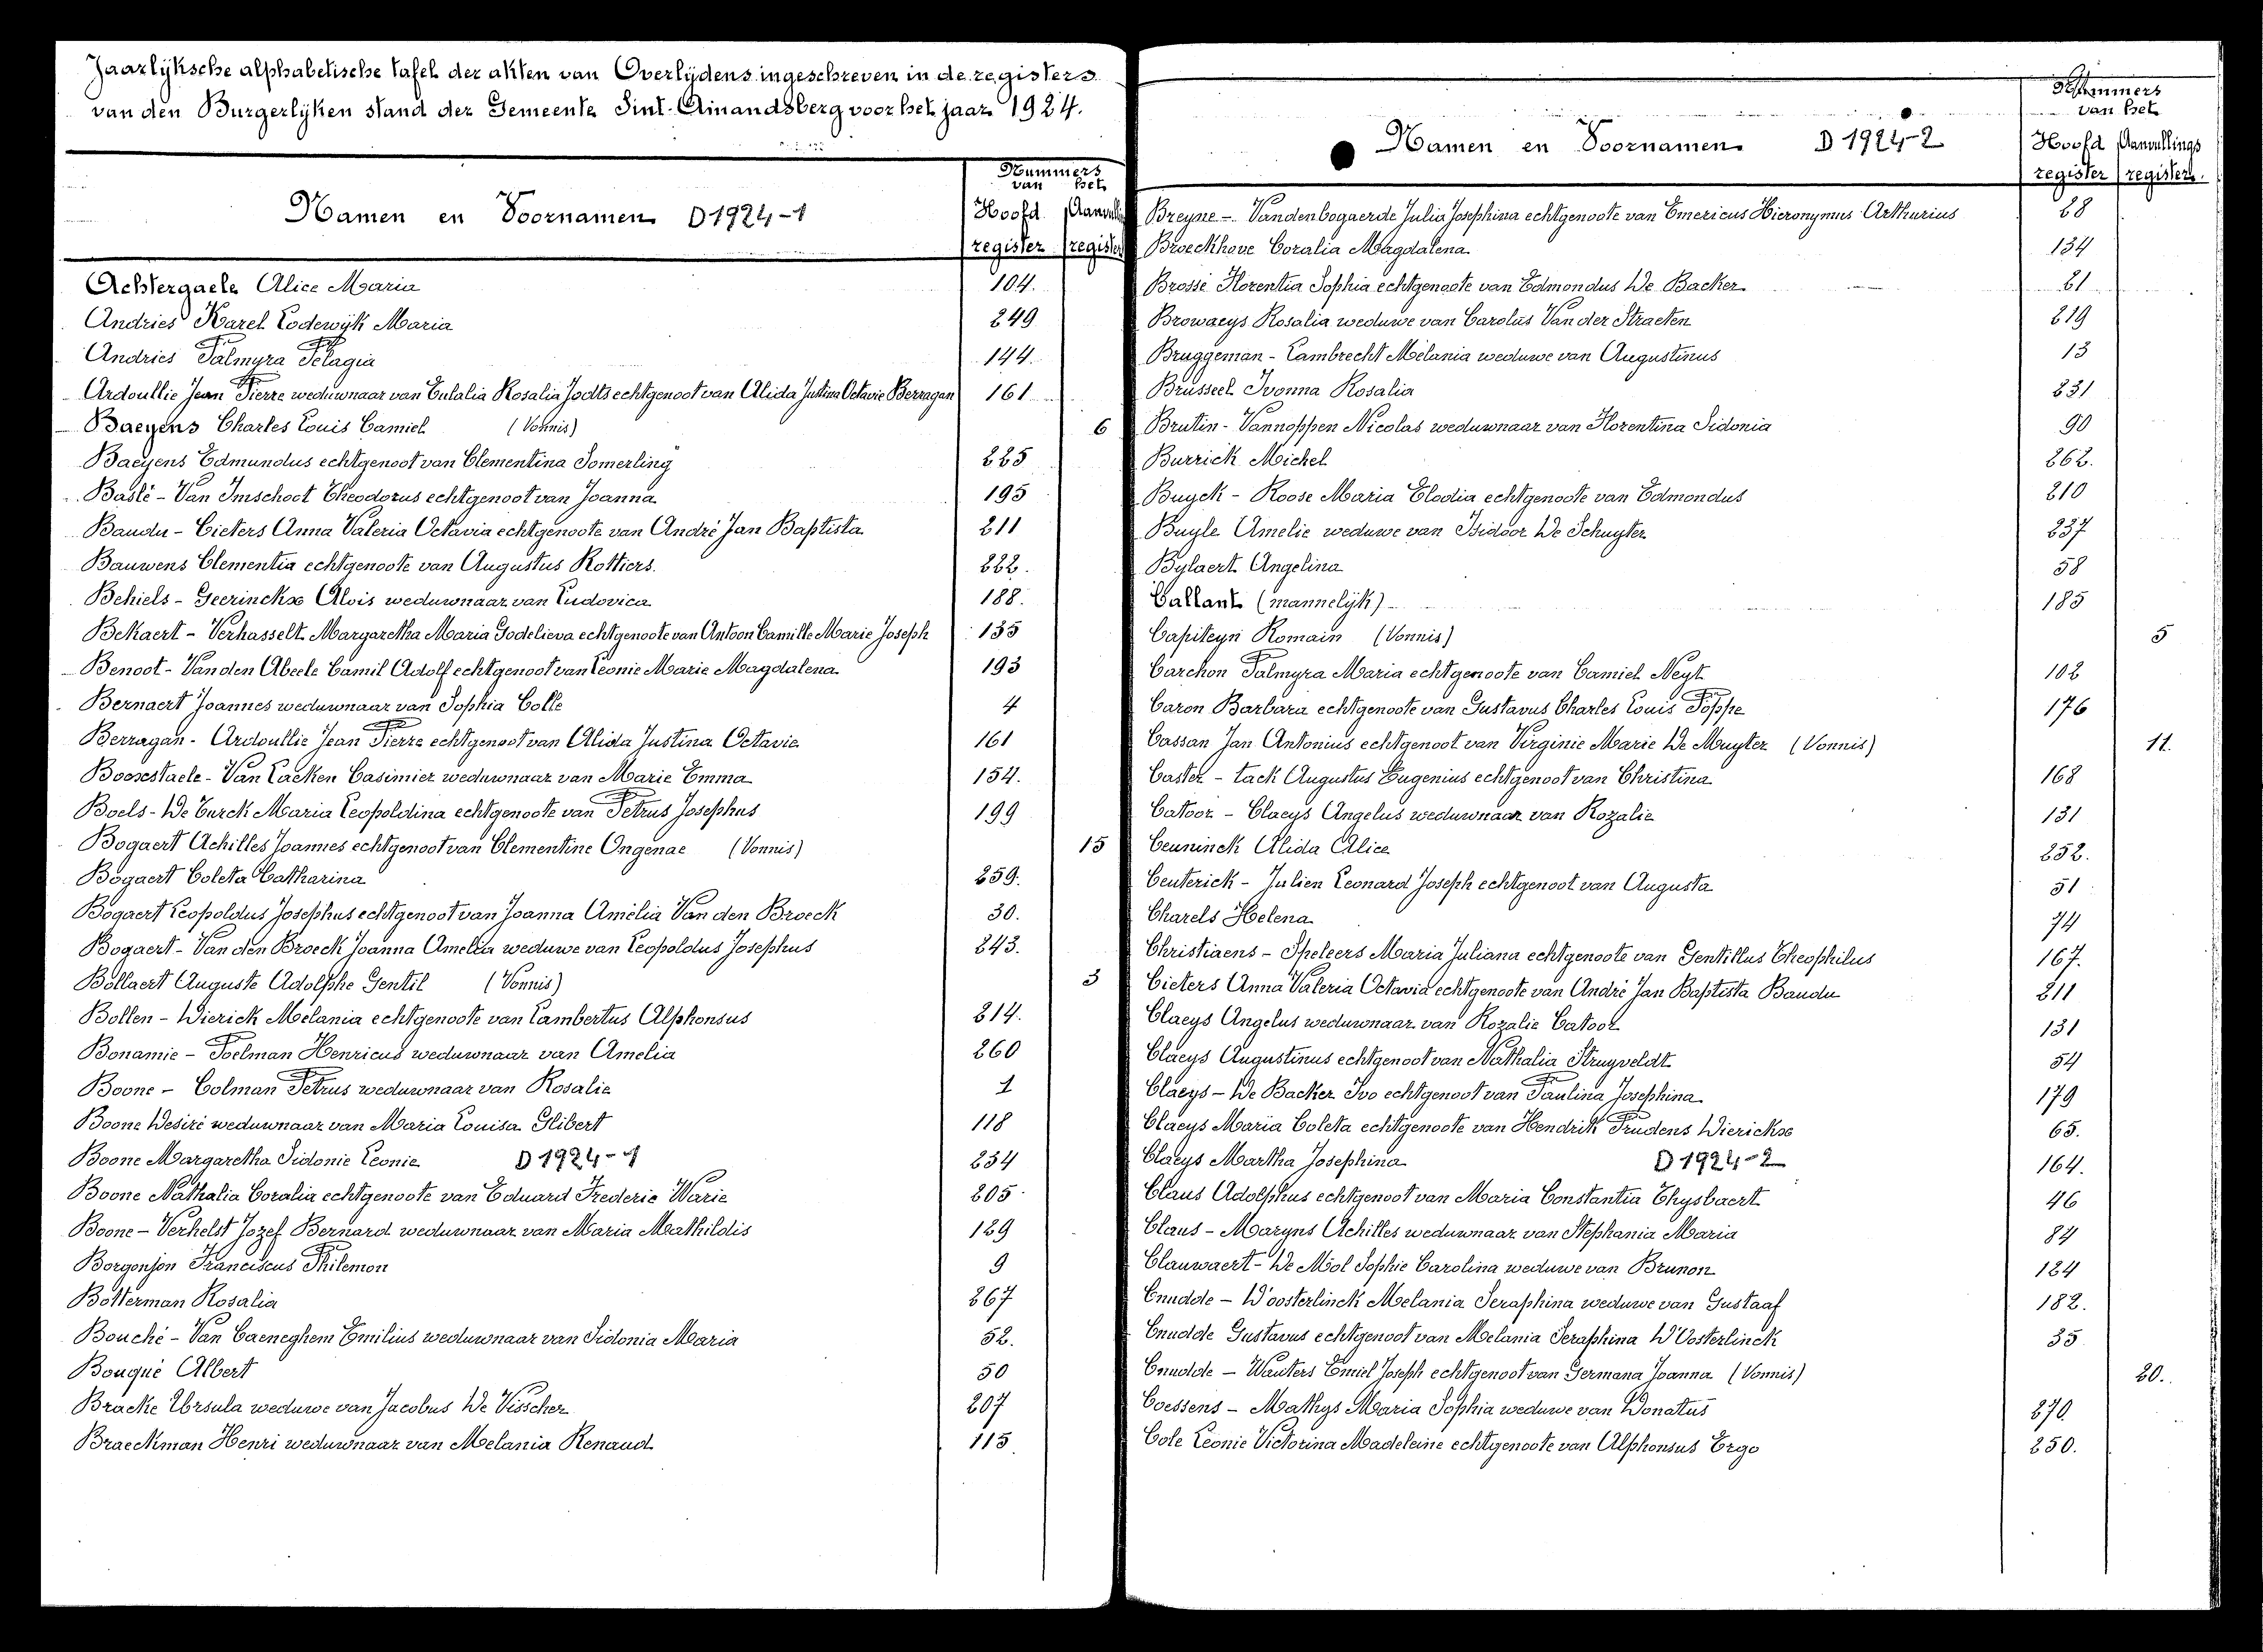 Jaarlijksche alphabetische tafel der akten van Overlijdens ingeschreven in de registers
van den Burgerlijken stand der Gemeente Sint-Amandsberg voor het jaar 1924.
Namen en Voornamen D1924-1
Nummers van het
Hoofd register
Achtergaele Alice Maria 104.
Andries Karel Lodewijk Maria 249
Andries Palmyra Pelagia 144.
Ardoullie Jean Pierre weduwnaar van Eulalia Rosalia Jodts echtgenoot van Alida Justina Octavie Berragan 161
Baeyens Charles Louis Camiel (Vonnis) 6
Baeyens Edmundus echtgenoot van Clementina Somerling 225
Baslé - Van Imschoot Theodorus echtgenoot van Joanna 195
Baudu - Cieters Anna Valeria Octavia echtgenoote van André Jan Baptista 211
Bauwens Clementia echtgenoote van Augustus Rottiers. 222.
Behiels - Geerinckx Alois weduwnaar van Ludovica 188.
Bekaert - Verhasselt Margaretha Maria Godelieva echtgenoote van Antoon Camille Marie Joseph 135
Benoot - Van den Abeele Camil Adolf echtgenoot van Leonie Marie Magdalena 193
Bernaert Joannes weduwnaar van Sophia Colle 4
Berragan - Ardoullie Jean Pierre echtgenoot van Alida Justina Octavie 161
Booxstaele - Van Laeken Casimier weduwnaar van Marie Emma 154.
Boels - De Turck Maria Leopoldina echtgenoote van Petrus Josephus 199
Bogaert Achilles Joannes echtgenoot van Clementine Ongenae (Vonnis) 15
Bogaert Coleta Catharina 259.
Bogaert Leopoldus Josephus echtgenoot van Joanna Amelia Van den Broeck 30.
Bogaert - Van den Broeck Joanna Amelia weduwe van Leopoldus Josephus 243.
Bollaert Auguste Adolphe Gentil (Vonnis) 3
Bollen - Dierick Melania echtgenoote van Lambertus Alphonsus 214.
Bonamie - Poelman Henricus weduwnaar van Amelia 260
Boone - Colman Petrus weduwnaar van Rosalie 1
Boone Desiré weduwnaar van Maria Louisa Glibert 118
Boone Margaretha Sidonie Leonie D1924-1 234
Boone Nathalia Coralia echtgenoote van Eduard Frederic Warie 205
Boone - Verhelst Jozef Bernard weduwnaar van Maria Mathildis 129
Borgonjon Franciscus Philemon 9
Botterman Rosalia 267
Bouché - Van Caeneghem Emilius weduwnaar van Sidonia Maria 52.
Bouqué Albert 50
Bracke Ursula weduwe van Jacobus De Visscher 207
Braeckman Henri weduwnaar van Melania Renaud 115
Namen en Voornamen D1924-2
Nummers van het
Hoofd register Aanvullings register
Breyne - Vandenbogaerde Julia Josephina echtgenoote van Emericus Hieronymus Arthurius 28
Broeckhove Coralia Magdalena 134
Brosse Florentia Sophia echtgenoote van Edmondus De Backer 21
Browaeys Rosalia weduwe van Carolus Van der Straeten 219
Bruggeman - Lambrecht Melania weduwe van Augustinus 13
Brusseel Ivonna Rosalia 231
Brutin - Vannoppen Nicolas weduwnaar van Florentina Sidonia 90
Burrick Michel 262.
Buyck - Roose Maria Elodia echtgenoote van Edmondus 210
Buyle Amelie weduwe van Isidoor De Schuyter 237
Bylaert Angelina 58
Callant (mannelijk) 185
Capiteyn Romain (Vonnis) 5
Carchon Palmyra Maria echtgenoote van Camiel Neyt 102
Caron Barbara echtgenoote van Gustavus Charles Louis Poppe 176
Cassan Jan Antonius echtgenoot van Virginie Marie De Muyter (Vonnis) 11.
Caster - tack Augustus Eugenius echtgenoot van Christina 168
Catoor - Claeys Angelus weduwnaar van Rozalie 131
Ceuninck Alida Alice 252.
Ceuterick - Julien Leonard Joseph echtgenoot van Augusta 51
Charels Helena 74
Christiaens - Speleers Maria Juliana echtgenoote van Gentillus Theophilus 167.
Cieters Anna Valeria Octavia echtgenoote van André Jan Baptista Baudu 211
Claeys Angelus weduwnaar van Rozalie Catoor 131
Claeys Augustinus echtgenoot van Nathalia Struyveldt 54
Claeys - De Backer Ivo echtgenoot van Paulina Josephina 179
Claeys Maria Coleta echtgenoote van Hendrik Prudens Dierickx 65.
Claeys Martha Josephina D1924-2 164.
Claus Adolphus echtgenoot van Maria Constantia Thysbaert 46
Claus - Maryns Achilles weduwnaar van Stephania Maria 84
Clauwaert - De Mol Sophie Carolina weduwe van Brunon 124
Cnudde - D'oosterlinck Melania Seraphina weduwe van Gustaaf 182.
Cnudde Gustavus echtgenoot van Melania Seraphina D'Oosterlinck 35
Cnudde - Wauters Emiel Joseph echtgenoot van Germana Joanna (Vonnis) 20.
Coessens - Mathys Maria Sophia weduwe van Donatus 270
Cole Leonie Victorina Madeleine echtgenoote van Alphonsus Ergo 250.